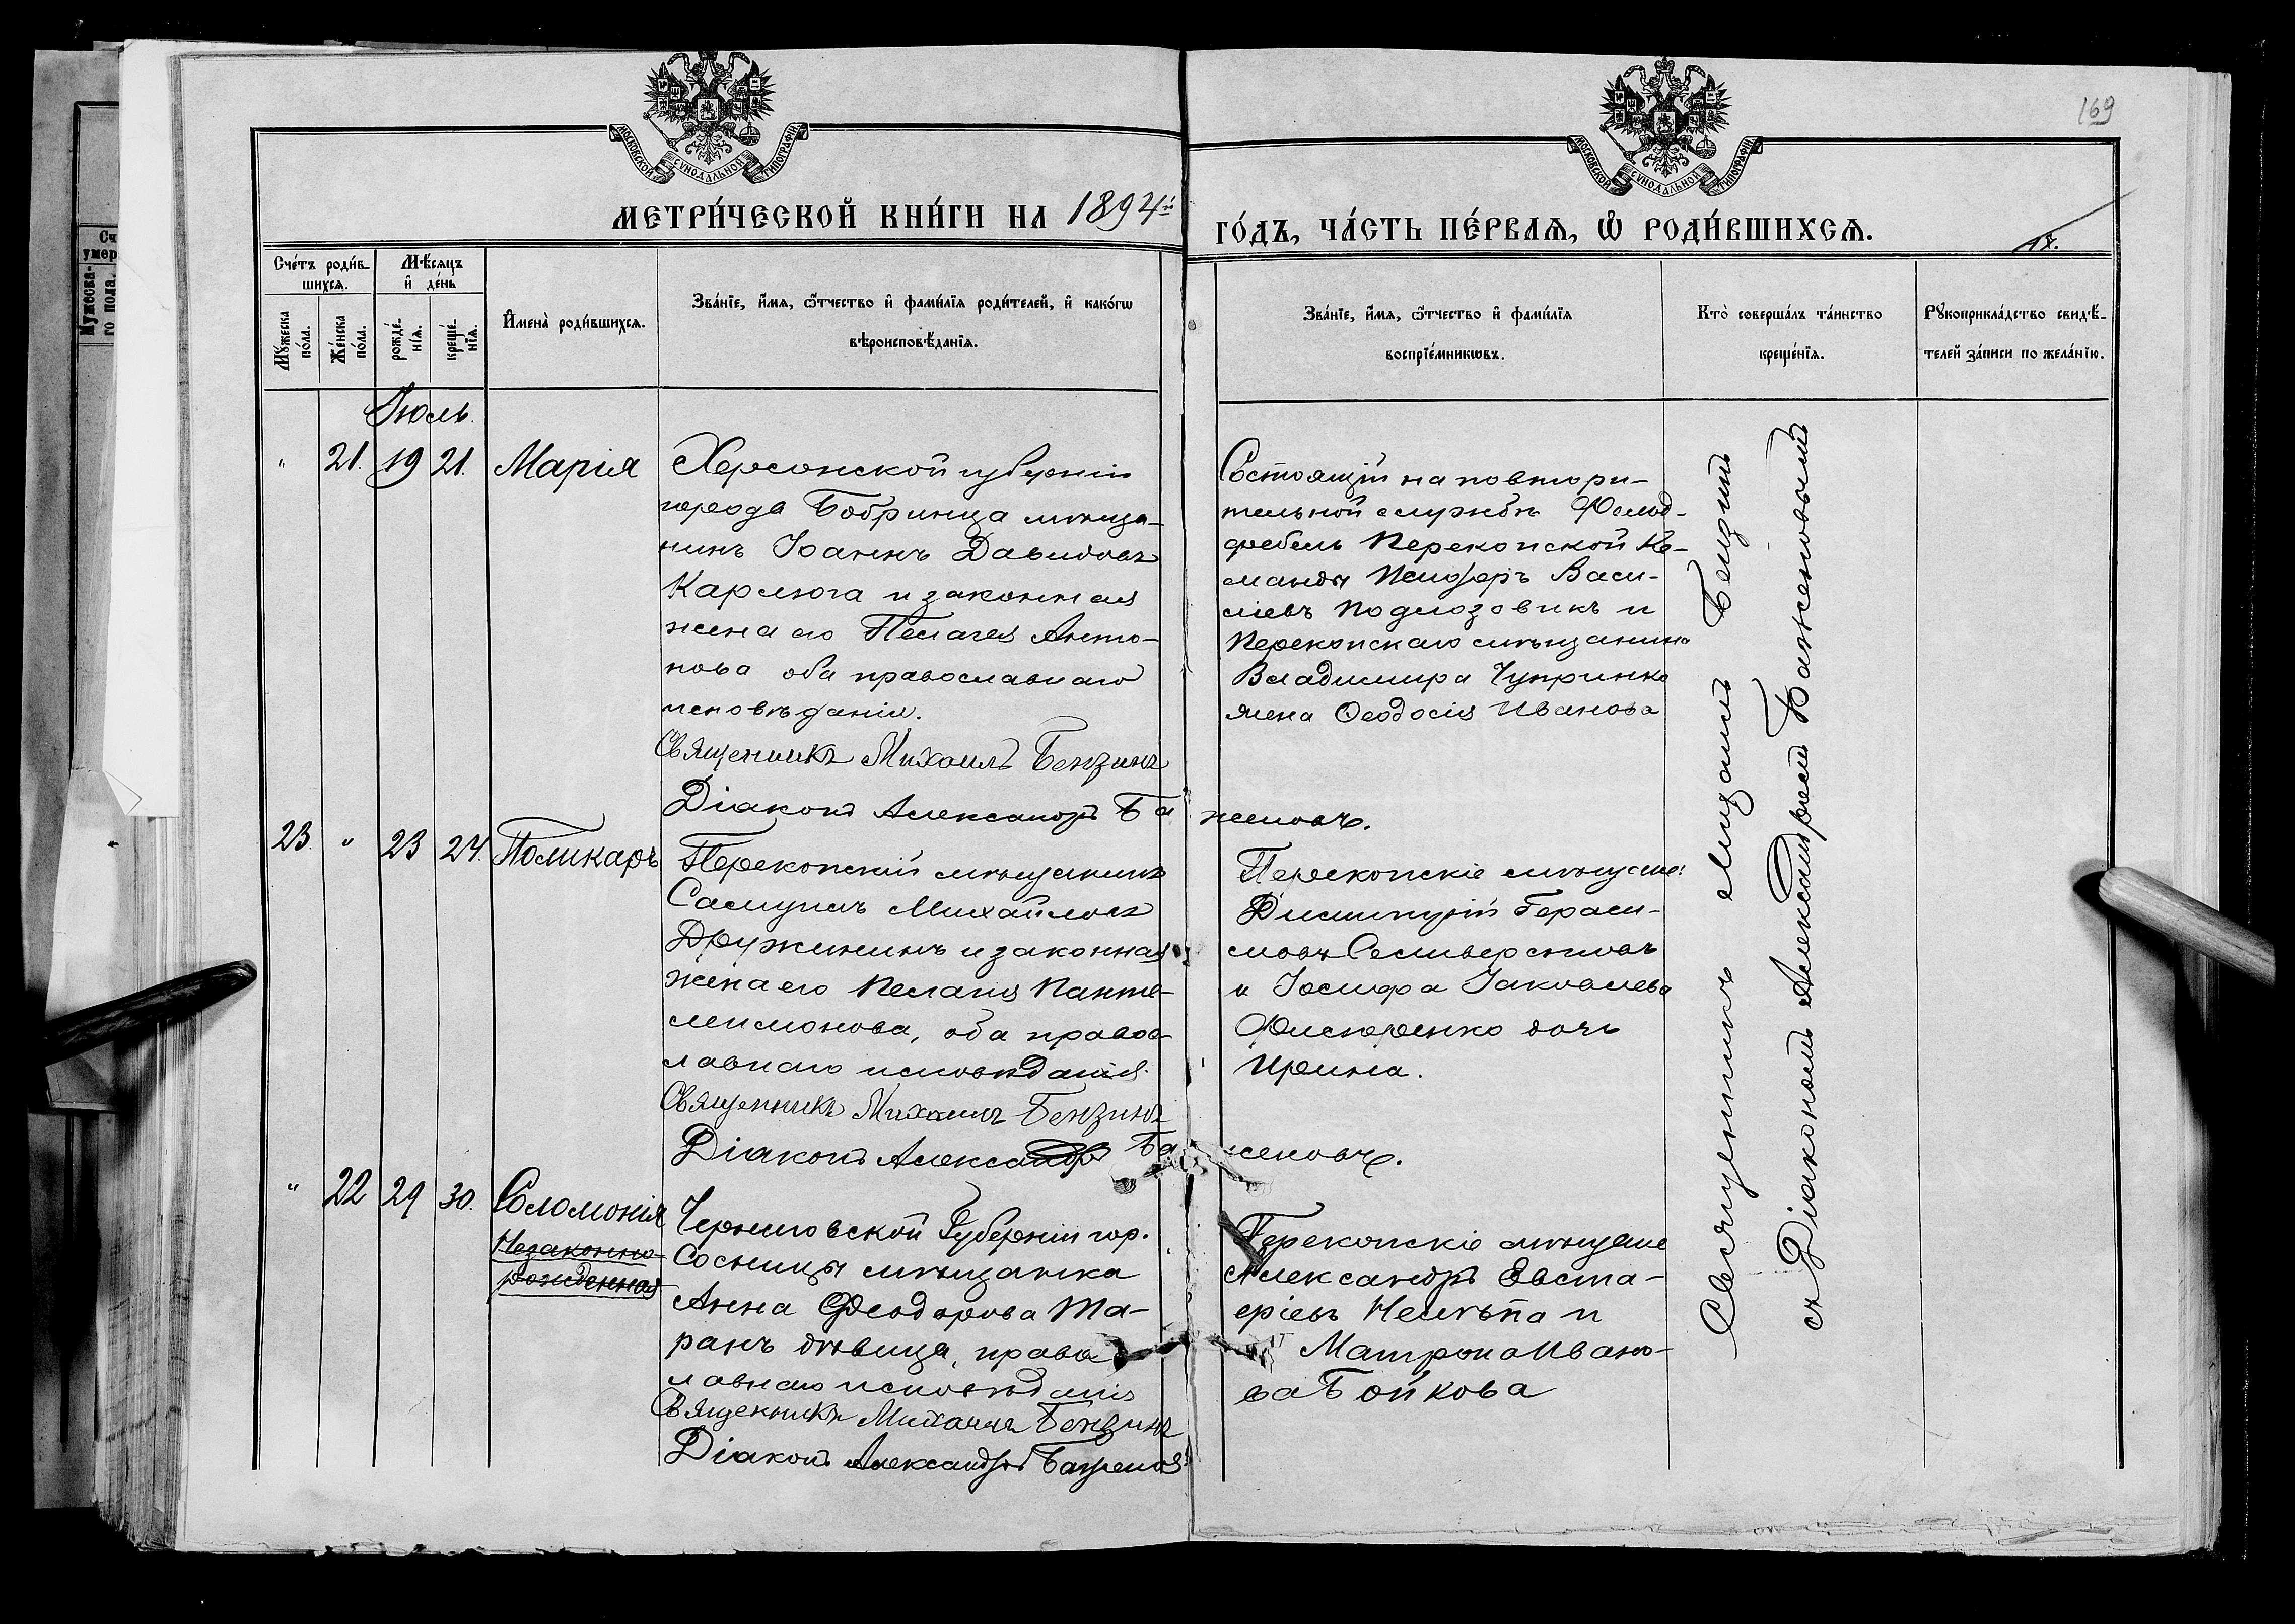 169
МОСКОВСКОЙ СУНОДАЛЬНОЙ ТИПОГРАФІИ
МОСКОВСКОЙ СУНОДАЛЬНОЙ ТИПОГРАФІИ
МЕТРИ́ЧЕСКОЙ КНИ́ГИ НА 1894й
ГО́ДЪ, ЧА́СТЬ ПЕ́РВАѦ, Ѿ РОДИ́ВШИХСѦ.
Сче́тъ роди́в-
шихсѧ.
Мꙋ́жеска
по́ла.
Же́нска
по́ла.
Мѣ́сяцъ
и҆ де́нь
рожде́-
нїѧ.
креще́-
нїѧ.
И҆мена̀ роди́вшихсѧ.
Зва́нїе, и҆́мѧ, ѻ҆́тчество и҆ фами́лїѧ роди́телей, и҆ како́гѡ
вѣроисповѣ́данїѧ.
Зва́нїе, и҆́мѧ, ѻ҆́тчество и҆ фами́лїѧ
воспрїе́мникѡвъ.
Кто̀ соверша́лъ та́инство
креще́нїѧ.
Рꙋкоприкла́дство свидѣ́-
телей за́писи по жела́нїю.
Июль.
" 21. 19 21. Марія
Херсонской губерніи
города Бобринца мѣща-
нинъ Іоаннъ Давидовъ
Карлюга и законная
жена его Пелагея Анто-
нова оба православнаго
исповѣданія.
Священникъ Михаилъ Бензинъ
Діаконъ Александръ Баженовъ.
Состоящій на повтори-
тельной службѣ Фельд-
фебель Перекопской Ко-
манды Василіевъ Подлозовикъ и
Перекопскаго мѣщанина
Владимира Чупринко
жена Ѳеодосія Иванова
23. " 23 24. Поликарпъ
Перекопскій мѣщанинъ
Самуилъ Михайловъ
Дружининъ и законная
жена его Пелагія Панте-
леимонова, оба правос-
лавнаго исповѣданія
Священникъ Михаилъ Бензинъ
Діаконъ Александръ Баженовъ.
Перекопскіе мѣщане:
Димитрій Гераси-
мовъ Селиверстовъ
и Іосифа Іаковлева
дочь
Ирина.
" 22 29 30. Соломонія
Незаконно-
рожденная
Черниговской Губерніи гор.
Сосницы мѣщанка
Анна Ѳеодорова Та-
ранъ дѣвица, правос-
лавнаго исповѣданія
Священникъ Михаилъ Бензинъ
Діаконъ Александръ Баженовъ
Перекопскіе мѣщане
Александръ Евста-
фіевъ и
Матрона Ивано-
ва Бойкова
Священникъ Михаилъ Бензинъ
съ Діакономъ Александромъ Баженовымъ